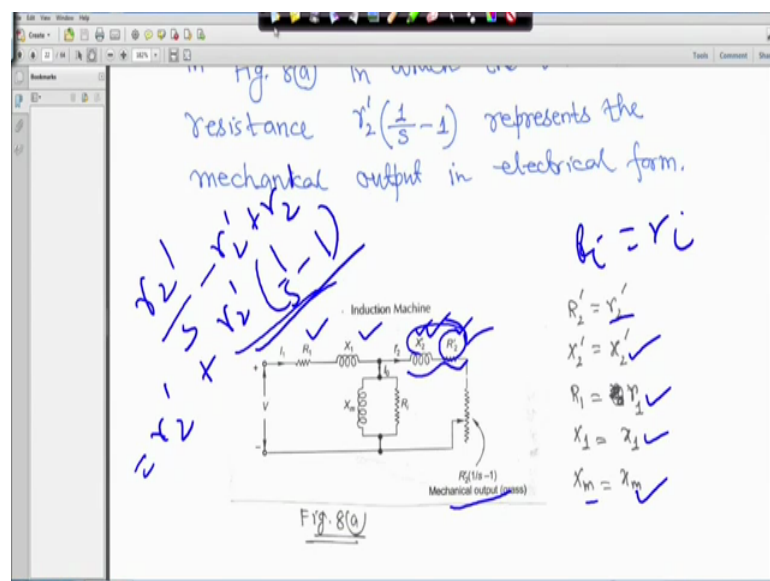 File Edit View Window Help
Create
22 / 64
182%
Tools Comment
Bookmarks
in Fig. 8(a) in which the
resistance r₂'(1/s − 1) represents the
mechanical output in electrical form.
r₂'/s − r₂' + r₂'
= r₂' + r₂'(1/s − 1)
Ri = ri
Induction Machine
I₁ R₁ X₁ I₂' X₂' R₂'
I₀
+
V Xm Ri
−
R₂'(1/s−1)
Mechanical output (gross)
R₂' = r₂'
X₂' = x₂'
R₁ = r₁
X₁ = x₁
Xm = xm
Fig. 8(a)